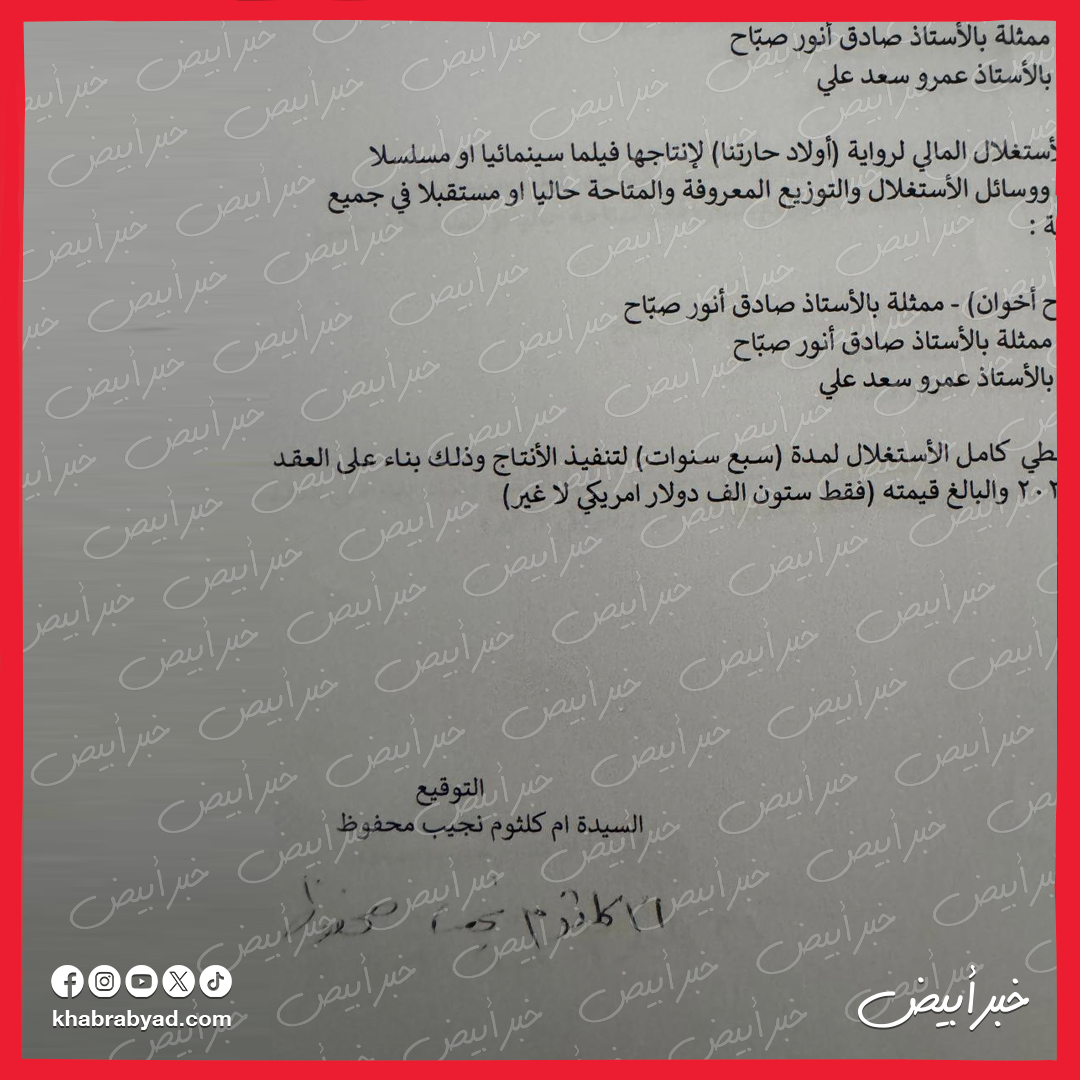 ممثلة بالأستاذ صادق أنور صبّاح
بالأستاذ عمرو سعد علي
لأستغلال المالي لرواية (أولاد حارتنا) لإنتاجها فيلما سينمائيا او مسلسلا
ووسائل الأستغلال والتوزيع المعروفة والمتاحة حاليا او مستقبلا في جميع
ة :
ح أخوان) - ممثلة بالأستاذ صادق أنور صبّاح
ممثلة بالأستاذ صادق أنور صبّاح
بالأستاذ عمرو سعد علي
طي كامل الأستغلال لمدة (سبع سنوات) لتنفيذ الأنتاج وذلك بناء على العقد
والبالغ قيمته (فقط ستون الف دولار امريكي لا غير)
التوقيع
السيدة ام كلثوم نجيب محفوظ
ام كلثوم نجيب محفوظ
khabrabyad.com
خبر أبيض